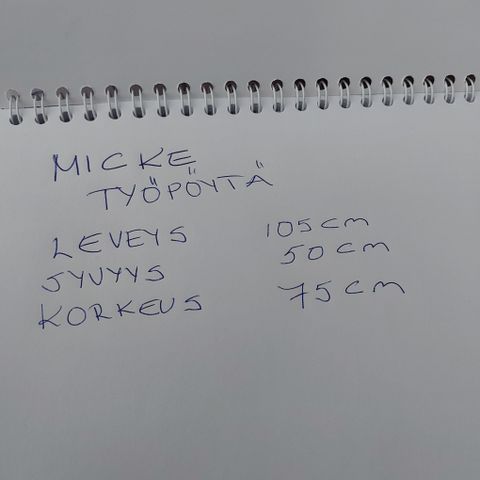 MICKE
TYÖPÖYTÄ
LEVEYS 105 cm
SYVYYS 50 cm
KORKEUS 75 cm